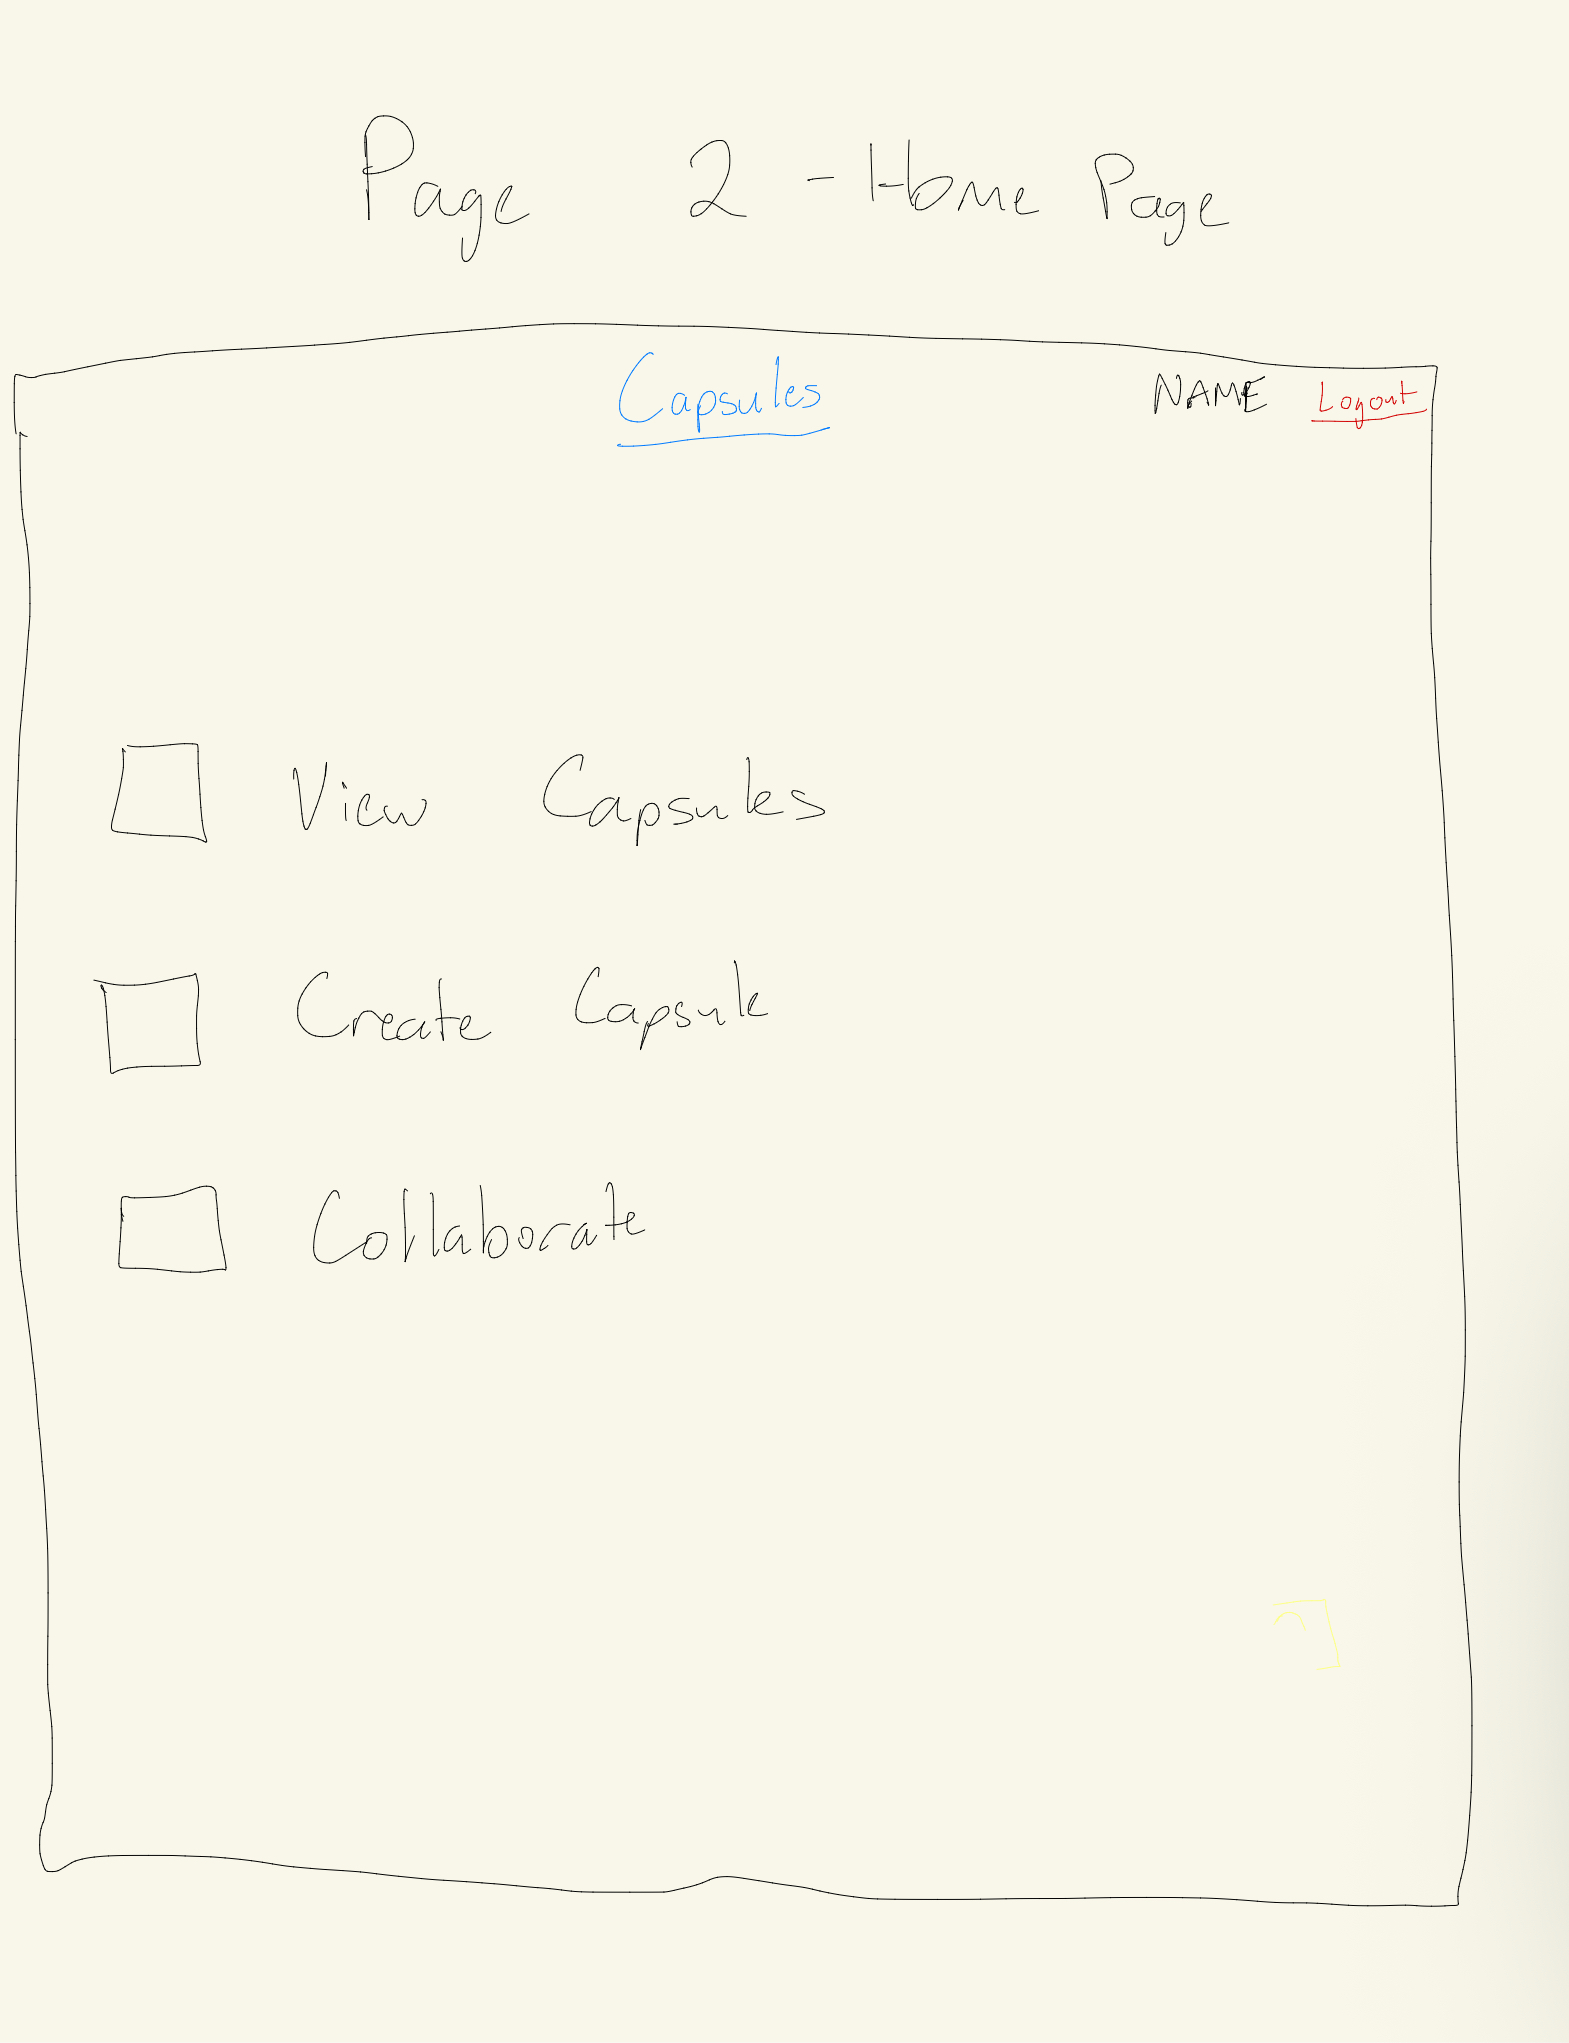 Page 2 - Home Page
Capsules NAME Logout
View Capsules
Create Capsule
Collaborate